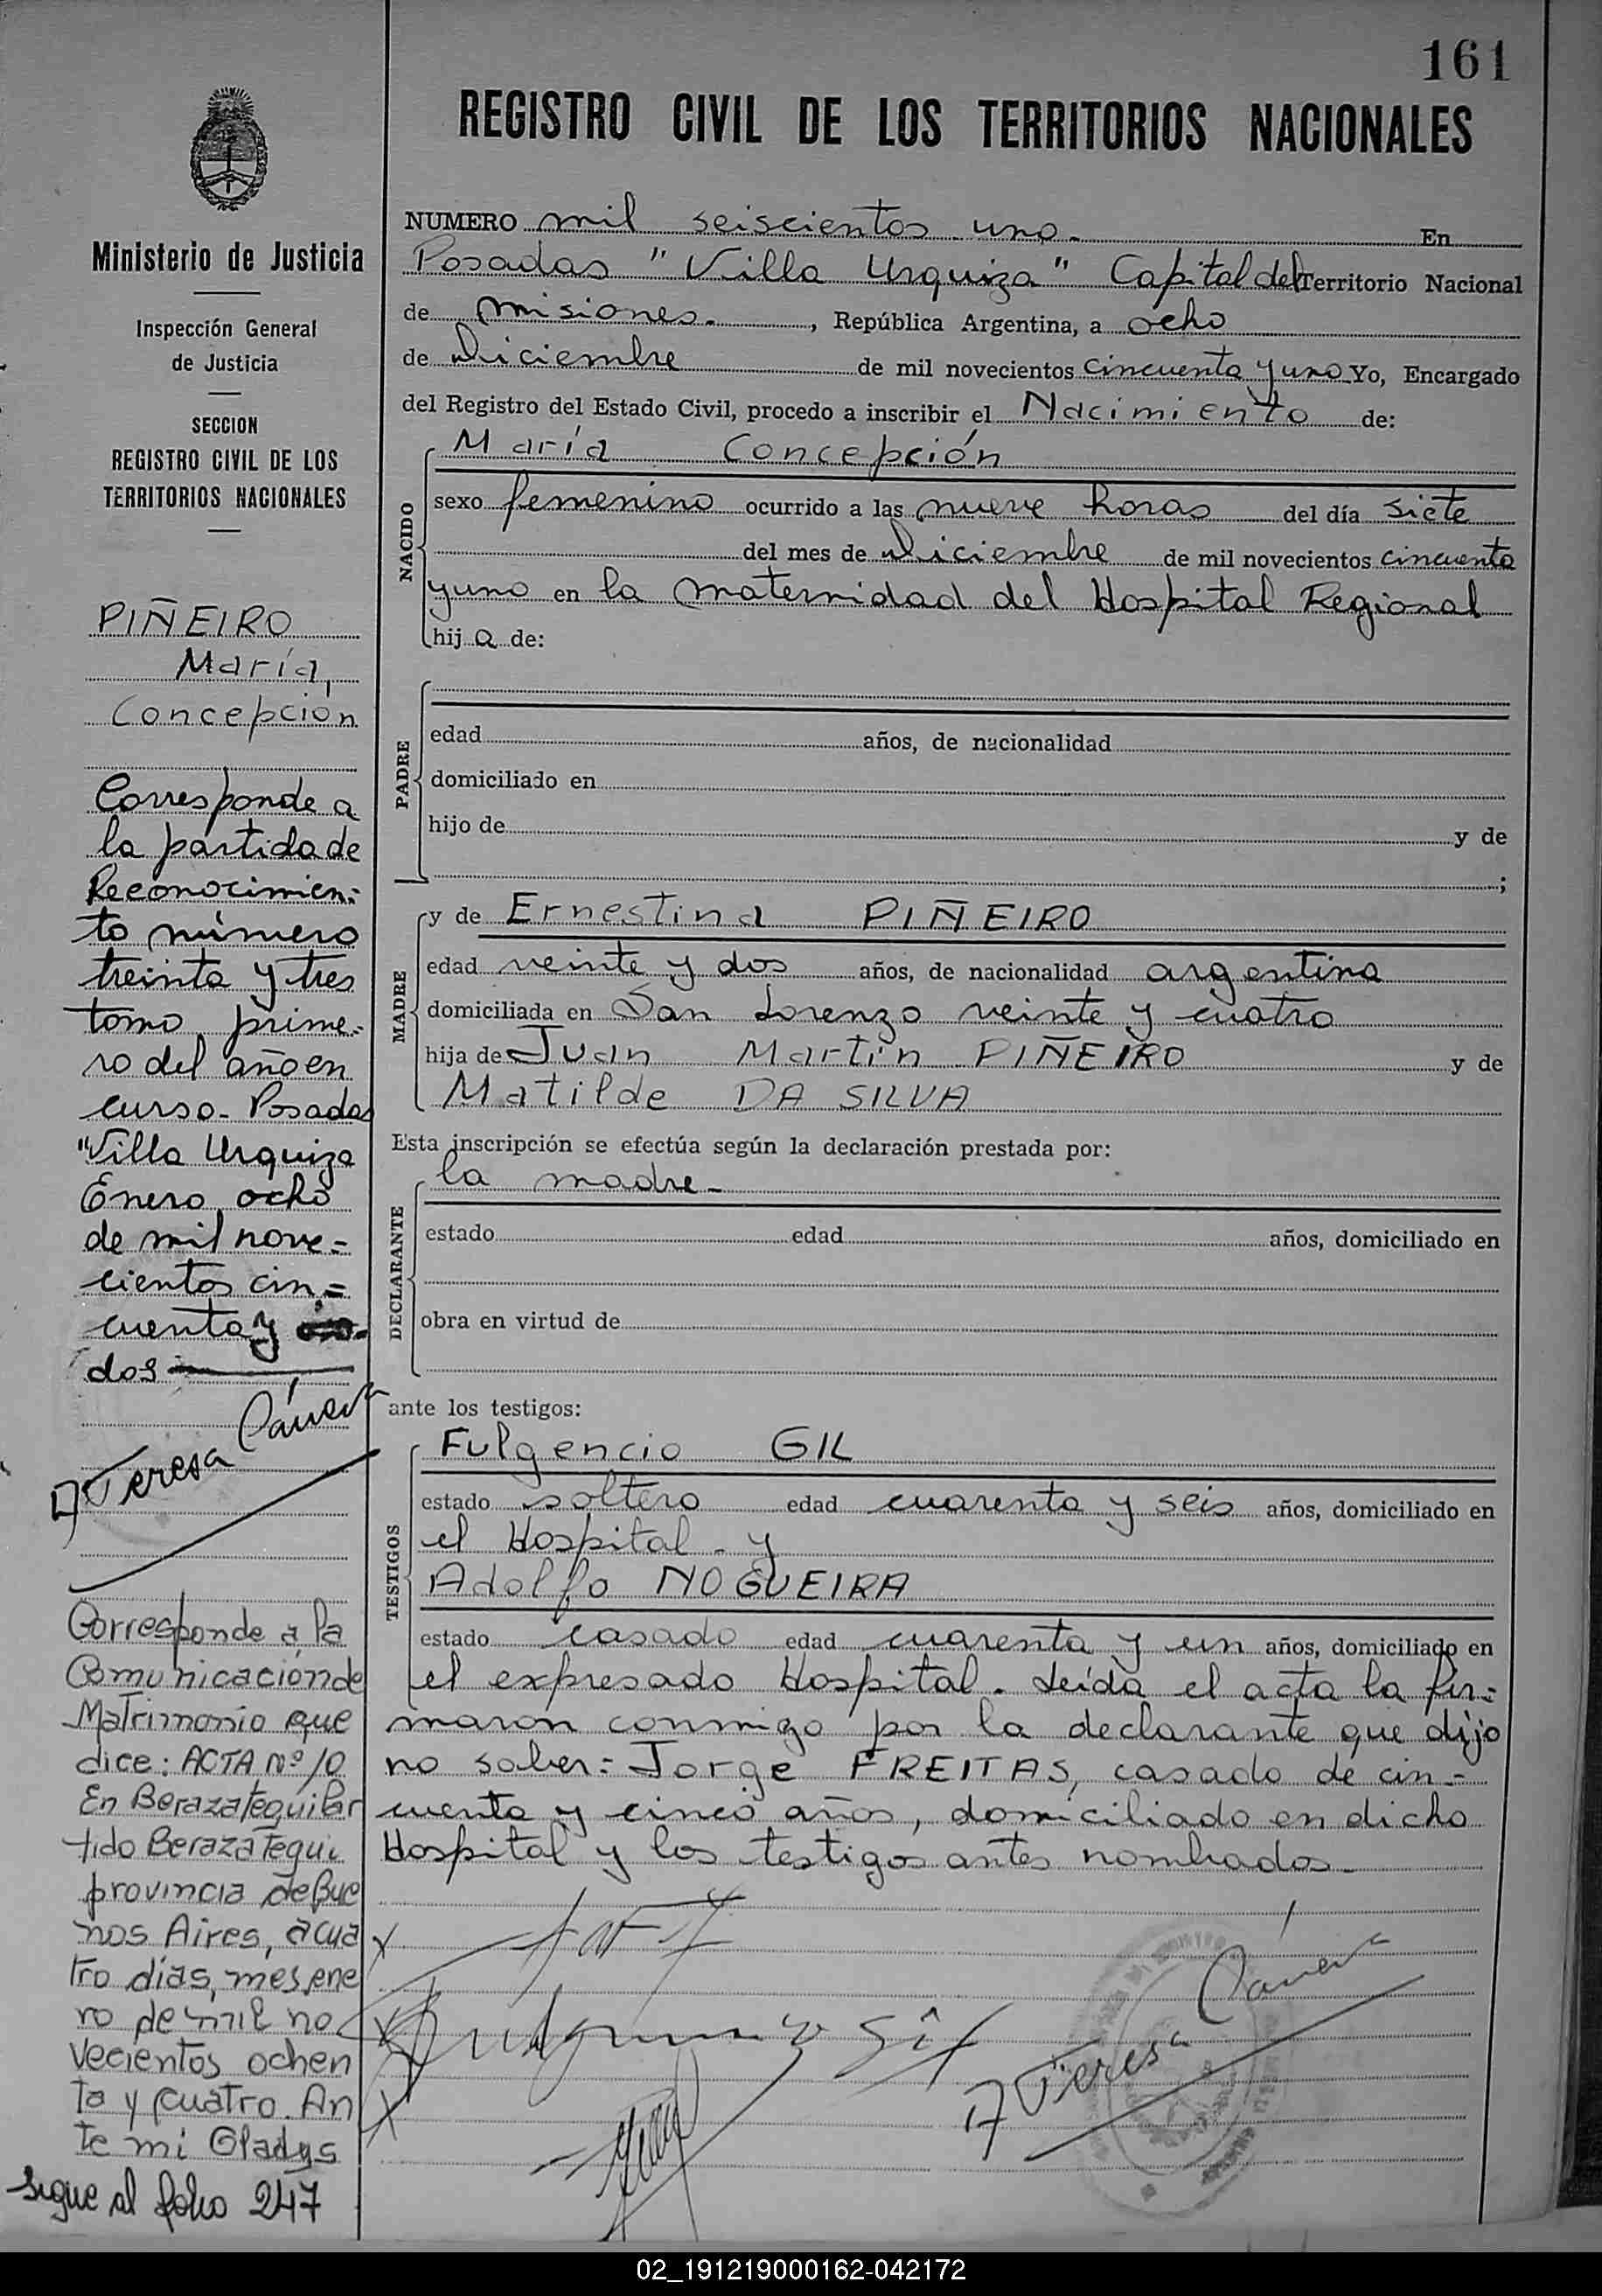 161
REGISTRO CIVIL DE LOS TERRITORIOS NACIONALES
Ministerio de Justicia
Inspección General
de Justicia
SECCION
REGISTRO CIVIL DE LOS
TERRITORIOS NACIONALES
PIÑEIRO
María,
Concepción
Corresponde a
la partida de
Reconocimien-
to número
treinta y tres
tomo prime-
ro del año en
curso- Posadas
"Villa Urquiza
Enero, ocho
de mil nove-
cientos cin-
cuenta y
dos
A Teresa
Corresponde a la
Comunicación de
Matrimonio que
dice: ACTA Nº 10
En Berazategui Par
tido Berazategui
provincia de Bue
nos Aires, a cua
tro días, mes ene
ro de mil no
vecientos ochen
ta y cuatro. An
te mi Gladys
sigue al folio 247
NUMERO mil seiscientos uno- En
Posadas "Villa Urquiza" Capital del Territorio Nacional
de Misiones-, República Argentina, a ocho
de Diciembre de mil novecientos cincuenta y uno Yo, Encargado
del Registro del Estado Civil, procedo a inscribir el Nacimiento de:
NACIDO
María Concepción
sexo femenino ocurrido a las nueve horas del día siete
del mes de Diciembre de mil novecientos cincuenta
y uno en la maternidad del Hospital Regional
hija de:
PADRE
edad años, de nacionalidad
domiciliado en
hijo de y de
;
MADRE
y de Ernestina PIÑEIRO
edad veinte y dos años, de nacionalidad argentina
domiciliada en San Lorenzo veinte y cuatro
hija de Juan Martín PIÑEIRO y de
Matilde DA SILVA
Esta inscripción se efectúa según la declaración prestada por:
DECLARANTE
la madre-
estado edad años, domiciliado en
obra en virtud de
ante los testigos:
TESTIGOS
Fulgencio GIL
estado soltero edad cuarenta y seis años, domiciliado en
el Hospital- y
Adolfo NOGUEIRA
estado casado edad cuarenta y un años, domiciliado en
el expresado Hospital. Leída el acta la fir-
maron conmigo por la declarante que dijo
no saber:- Jorge FREITAS, casado de cin-
cuenta y cinco años, domiciliado en dicho
Hospital y los testigos antes nombrados-
A Teresa
02_191219000162-042172